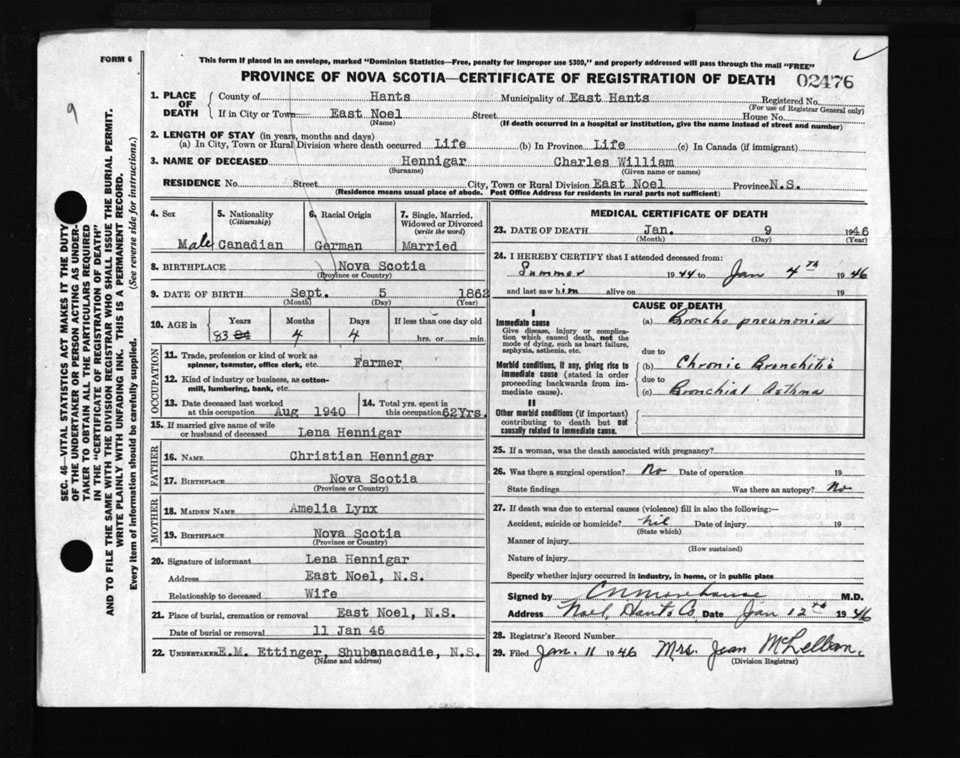 FORM 6
This form if placed in an envelope, marked "Dominion Statistics—Free, penalty for improper use $300," and properly addressed will pass through the mail "FREE"
PROVINCE OF NOVA SCOTIA—CERTIFICATE OF REGISTRATION OF DEATH 02476
9
SEC. 46—VITAL STATISTICS ACT MAKES IT THE DUTY
OF THE UNDERTAKER OR PERSON ACTING AS UNDER-
TAKER TO OBTAIN ALL THE PARTICULARS REQUIRED
IN THE "CERTIFICATE OF REGISTRATION OF DEATH"
AND TO FILE THE SAME WITH THE DIVISION REGISTRAR WHO SHALL ISSUE THE BURIAL PERMIT.
WRITE PLAINLY WITH UNFADING INK. THIS IS A PERMANENT RECORD.
Every item of information should be carefully supplied. (See reverse side for instructions.)
1. PLACE OF DEATH County of Hants Municipality of East Hants Registered No.
(For use of Registrar General only)
If in City or Town East Noel Street House No.
(Name) (If death occurred in a hospital or institution, give the name instead of street and number)
2. LENGTH OF STAY (in years, months and days)
(a) In City, Town or Rural Division where death occurred Life (b) In Province Life (c) In Canada (if immigrant)
3. NAME OF DECEASED Hennigar Charles William
(Surname) (Given name or names)
RESIDENCE No. Street City, Town or Rural Division East Noel Province N.S.
(Residence means usual place of abode. Post Office Address for residents in rural parts not sufficient)
4. Sex 5. Nationality (Citizenship) 6. Racial Origin 7. Single, Married, Widowed or Divorced (write the word)
Male Canadian German Married
8. BIRTHPLACE Nova Scotia
(Province or Country)
9. DATE OF BIRTH Sept. 5 1862
(Month) (Day) (Year)
10. AGE in Years Months Days If less than one day old
83 84 4 4 hrs. or min.
OCCUPATION
11. Trade, profession or kind of work as spinner, teamster, office clerk, etc. Farmer
12. Kind of industry or business, as cotton-mill, lumbering, bank, etc.
13. Date deceased last worked at this occupation Aug 1940 14. Total yrs. spent in this occupation 62Yrs.
15. If married give name of wife or husband of deceased Lena Hennigar
FATHER
16. NAME Christian Hennigar
17. BIRTHPLACE Nova Scotia
(Province or Country)
MOTHER
18. MAIDEN NAME Amelia Lynx
19. BIRTHPLACE Nova Scotia
(Province or Country)
20. Signature of informant Lena Hennigar
Address East Noel, N.S.
Relationship to deceased Wife
21. Place of burial, cremation or removal East Noel, N.S.
Date of burial or removal 11 Jan 46
22. UNDERTAKER E.M. Ettinger, Shubenacadie, N.S.
(Name and address)
MEDICAL CERTIFICATE OF DEATH
23. DATE OF DEATH Jan. 9 1946
(Month) (Day) (Year)
24. I HEREBY CERTIFY that I attended deceased from:
Summer 1944 to Jan 4th 1946
and last saw him alive on 19
CAUSE OF DEATH
I
Immediate cause
Give disease, injury or complication which caused death, not the mode of dying, such as heart failure, asphyxia, asthenia, etc.
(a) Broncho pneumonia
due to
Morbid conditions, if any, giving rise to immediate cause (stated in order proceeding backwards from immediate cause).
(b) Chronic Bronchitis
due to
(c) Bronchial Asthma
II
Other morbid conditions (if important) contributing to death but not causally related to immediate cause.
25. If a woman, was the death associated with pregnancy?
26. Was there a surgical operation? No Date of operation 19
State findings Was there an autopsy? No
27. If death was due to external causes (violence) fill in also the following:—
Accident, suicide or homicide? Nil Date of injury 19
(State which)
Manner of injury
(How sustained)
Nature of injury
Specify whether injury occurred in industry, in home, or in public place
Signed by C N Morehouse M.D.
Address Noel, Hants Co. Date Jan 12th 1946
28. Registrar's Record Number
29. Filed Jan. 11 1946 Mrs. Jean McLellan.
(Division Registrar)